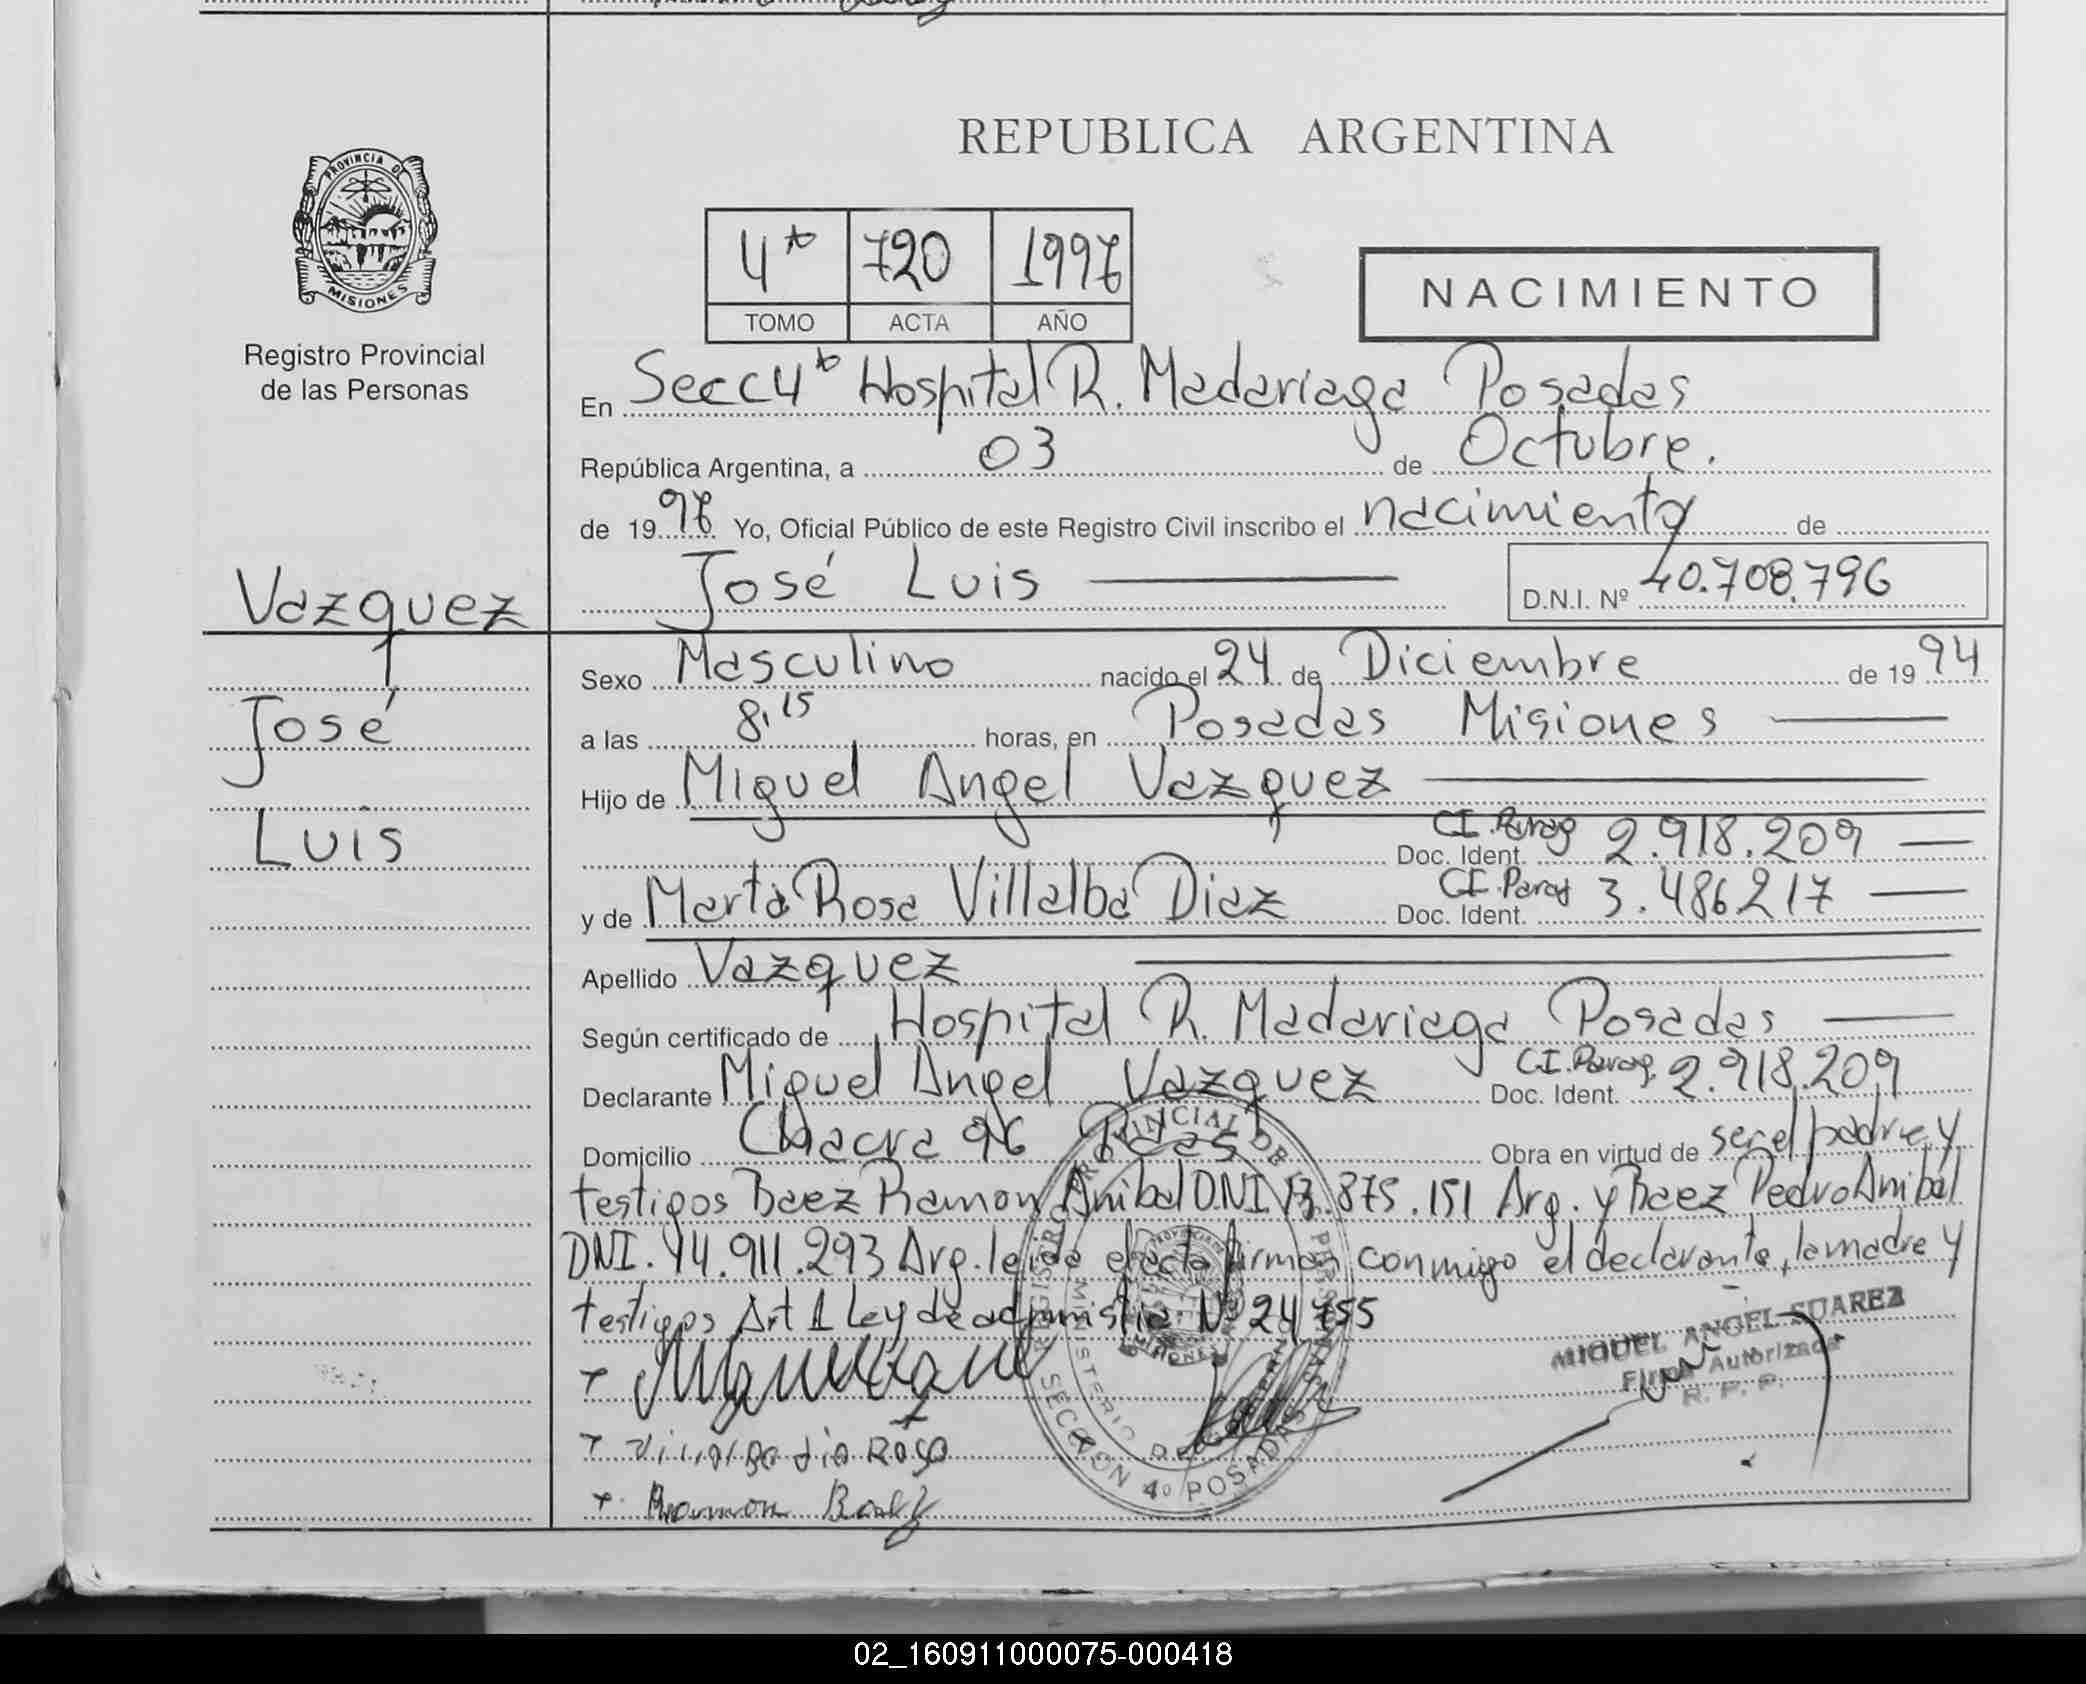 REPUBLICA ARGENTINA
PROVINCIA DE
MISIONES
Registro Provincial
de las Personas
4ta 720 1997
TOMO ACTA AÑO
NACIMIENTO
En Secc 4ta Hospital R. Madariaga Posadas
República Argentina, a 03 de Octubre.
de 1997 Yo, Oficial Público de este Registro Civil inscribo el nacimiento de
José Luis D.N.I. Nº 40.708.796
Vazquez
José
Luis
Sexo Masculino nacido el 24 de Diciembre de 1994
a las 8,15 horas, en Posadas Misiones
Hijo de Miguel Angel Vazquez
Doc. Ident. CI. Parag 2.918.209
y de Marta Rosa Villalba Diaz Doc. Ident. CI. Parag 3.486217
Apellido Vazquez
Según certificado de Hospital R. Madariaga Posadas
Declarante Miguel Angel Vazquez Doc. Ident. C.I. Parag. 2.918.209
Domicilio Chacra 96 Pdas Obra en virtud de ser el padre y
testigos Baez Ramon Anibal D.N.I. 13.875.151 Arg. y Baez Pedro Anibal
DNI. 14.911.293 Arg. leida el acta firman conmigo el declarante, la madre y
testigos Art 1 Ley de admnistia Nº 24755
Villalba dia Rosa
Ramon Baez
REGISTRO PROVINCIAL DE LAS PERSONAS
SECCION 4º POSADAS
MIGUEL ANGEL SUAREZ
Firma Autorizada
R. P. P.
02_160911000075-000418